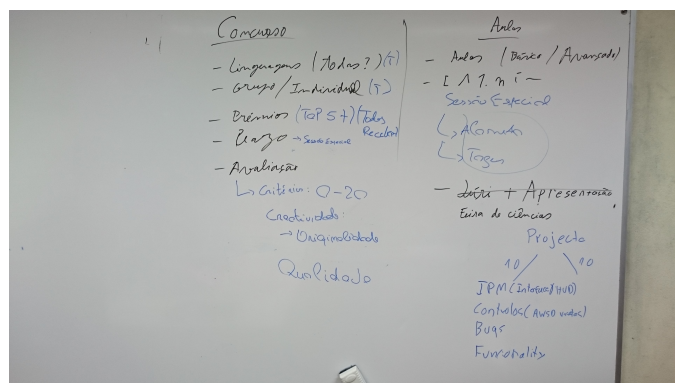 Concurso
- Linguagens (Todas?) (T)
- Grupo/Individual (T)
- Prémios (TOP 5?) (Todos Recebem)
- Prazo → Sessão Especial
- Avaliação
↳ Critérios: 0-20
Creatividade:
→ Originalidade
Qualidade
Aulas
- Aulas (Básico/Avançado)
Sessão Especial
- Júri + Apresentação
Feira de ciências
Projecto
10 10
IPM (Interface/HUD)
Controlos (AWSD
Bugs